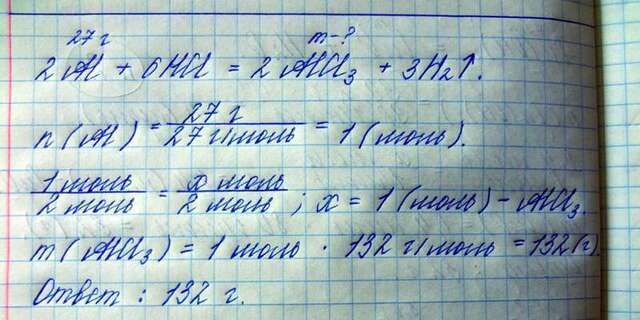 27 г m-?
2Al + 6HCl = 2AlCl₃ + 3H₂↑.
n(Al) = 27 г / 27 г/моль = 1 (моль).
1 моль / 2 моль = x моль / 2 моль ; x = 1 (моль) - AlCl₃.
m(AlCl₃) = 1 моль · 132 г/моль = 132 (г).
Ответ : 132 г.